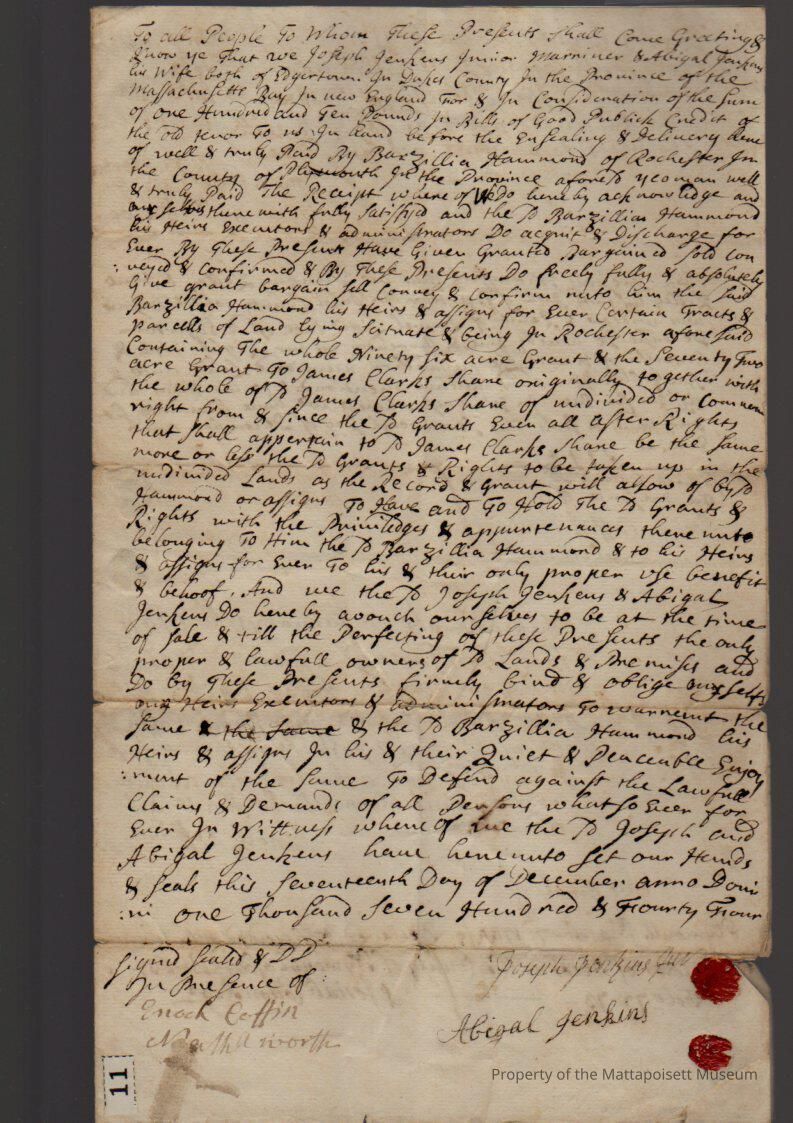 To all People To Whom These Presents Shall Come Greeting &
Know ye That we Joseph Jenkens Junior Marriner & Abigal Jenkens
his Wife both of Edgertown In Dukes County In the Province of the
Massachusetts Bay In new England For & In Consideration of the Sum
of one Hundred and Ten Pounds In Bills of Good Publick Credit of
the old tenor To us In hand before the Ensealing & Delivery here
of well & truly Paid By Barzillia Hammond of Rochester In
the County of Plymouth In the Province aforesd yeoman well
& truly Paid The Receipt where of We Do hereby acknowlidge and
our selves there with fully Satisfyd and the sd Barzillia Hammond
his Heirs Executors & administrators Do acquit & Discharge for
Ever By These Presents Have Given Granted Bargained Sold Con
: veyed & confirmed & By These Presents Do freely fully & absolutely
Give grant bargain sell Convey & Confirm unto him the said
Barzillia Hammond his Heirs & assigns for Ever Certain Tracts &
parcells of Land lying Scituate & being In Rochester aforesaid
Containing The whole Ninety Six acre Grant & the Seventy Two
acre Grant To James Clarks Share originally together with
the whole of sd James Clarks Share of undivided or Common
right from & Since the sd Grants Even all after Rights
that Shall appertain to sd James Clarks Share be the Same
more or less the sd Grants & Rights to be taken up in the
undivided Lands as the Record & Grant will allow of by sd
Hammond or assigns To Have and To Hold The sd Grants &
Rights with the Priviledges & appurtenances there unto
belonging To Him the sd Barzillia Hammond & to his Heirs
& assigns for Ever To his & their only proper use benefit
& behoof. And we the sd Joseph Jenkens & Abigal
Jenkens Do hereby avouch our selves to be at the time
of Sale & till the Perfecting of these Presents the only
proper & lawfull owners of sd Lands & Premises and
Do by These Presents firmly bind & oblige our selfs
our Heirs Executors & administrators To warrent the
Same & the Same & the sd Barzillia Hammond his
Heirs & assigns In his & their Quiet & Peaceable Enjoy
: ment of the Same To Defend against the Lawfull
Claims & Demands of all Persons what so Ever for
Ever In Wittness where of we the sd Joseph and
Abigal Jenkens have hereunto Set our Hands
& Seals this Seventeenth Day of December anno Domi
: ni one Thousand Seven Hundred & Fourty Four
Signed Sealed & DD
In Presence of
Joseph Jenkins Jur
Enoch Coffin
Abigal Jenkins
worth
11
Property of the Mattapoisett Museum